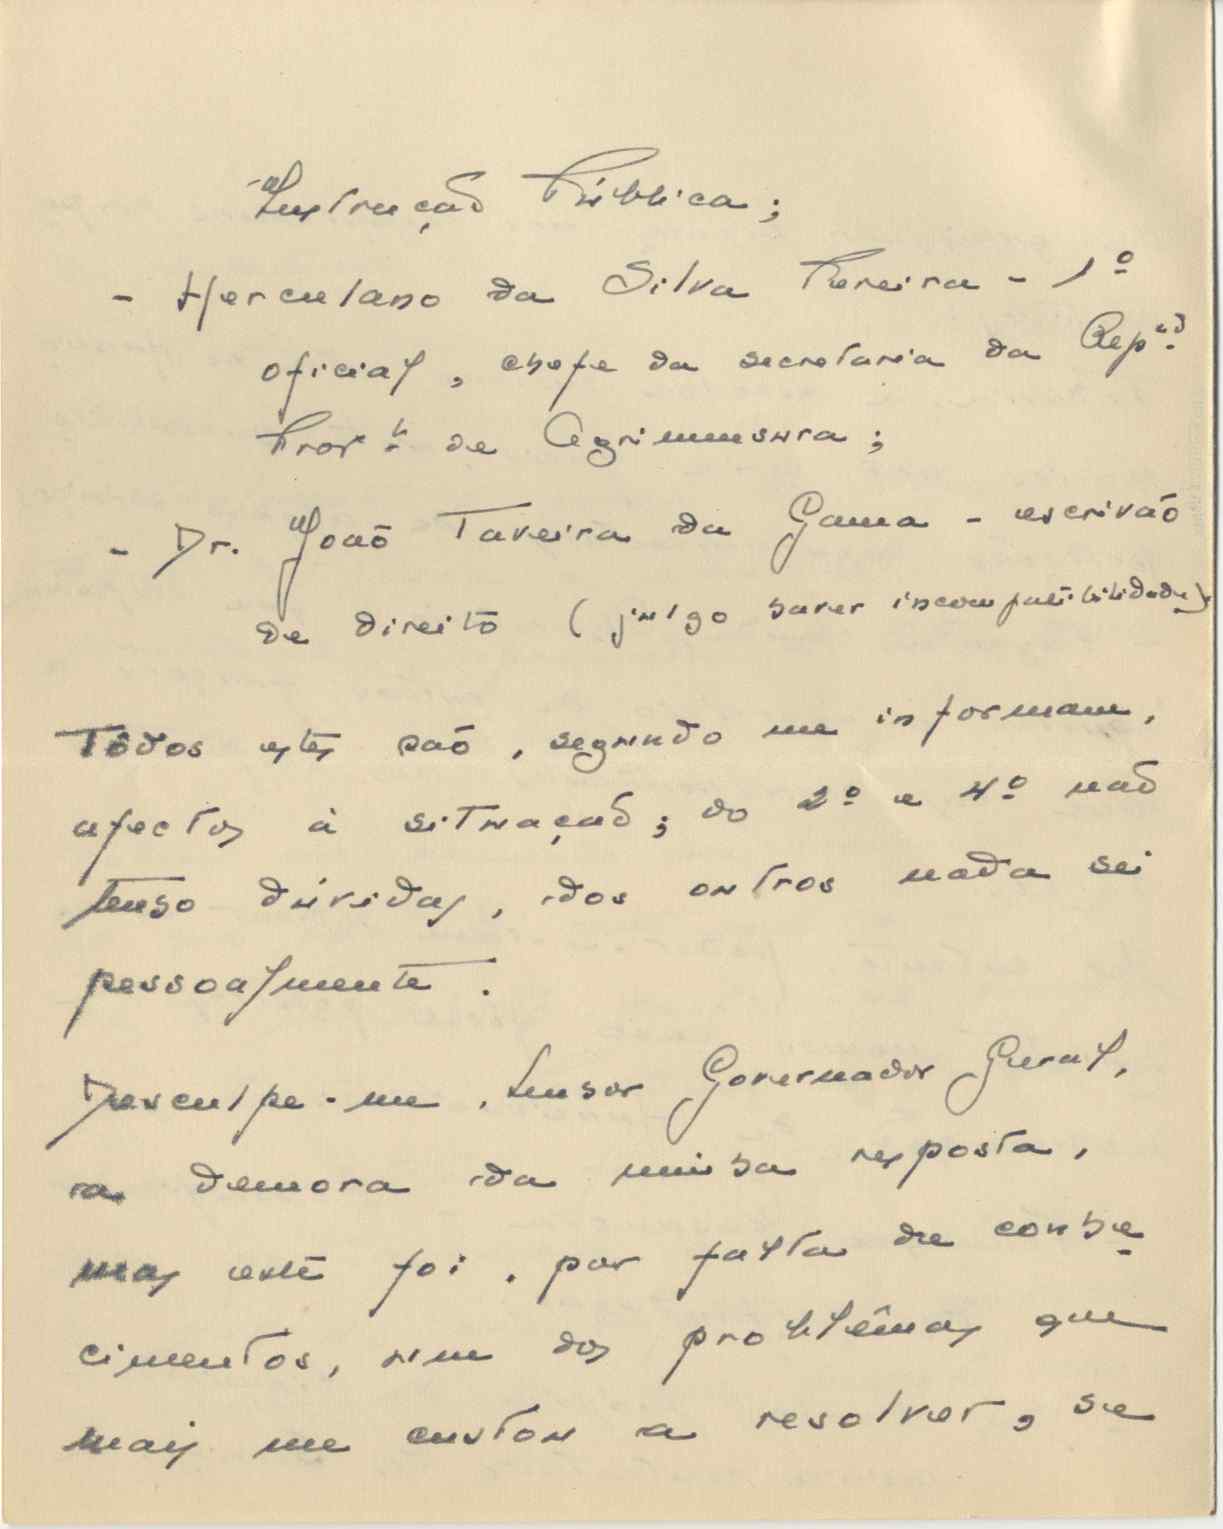 Instrução Pública;
- Herculano da Silva Pereira - 1º
oficial, chefe da secretaria da Repᵃᵒ
Provˡ de Agrimensura;
- Dr. João Taveira da Gama - escrivão
de direito (julgo haver incompatibilidade);
Todos estes são, segundo me informam,
afectos à situação; do 2º e 4º não
tenho dúvidas, dos outros nada sei
pessoalmente.
Desculpe-me, Senhor Governador Geral,
a demora da minha resposta,
mas este foi, por falta de conhe-
cimentos, um dos problêmas que
mais me custou a resolver, se